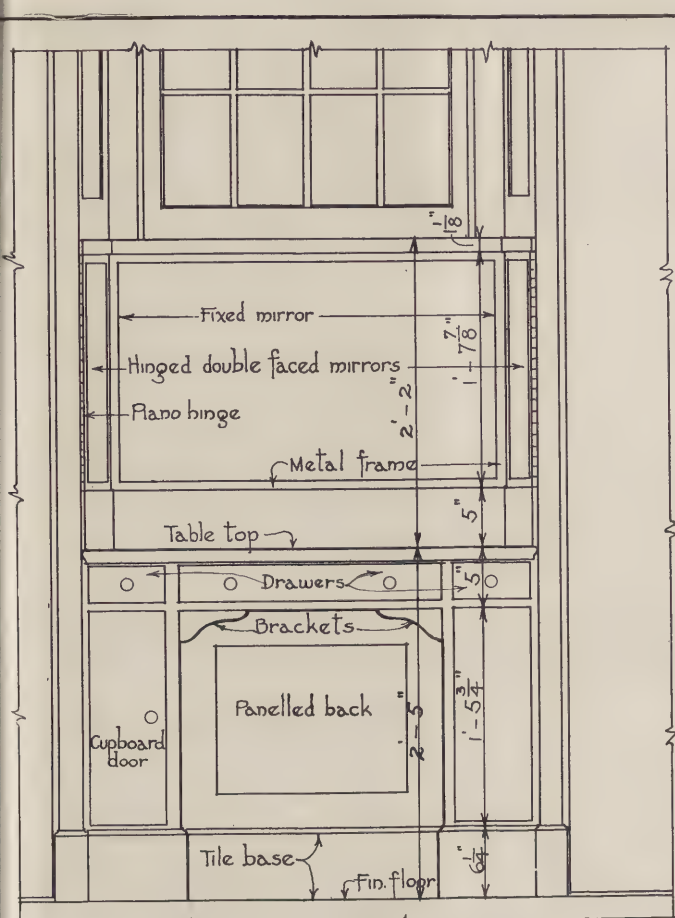 1 1/8"
Fixed mirror
1'-7 7/8"
Hinged double faced mirrors
2'-2"
Piano hinge
Metal frame
5"
Table top
Drawers
5"
Brackets
Panelled back
1'-5 3/4"
2'-5"
Cupboard
door
Tile base
6 1/4"
Fin. floor